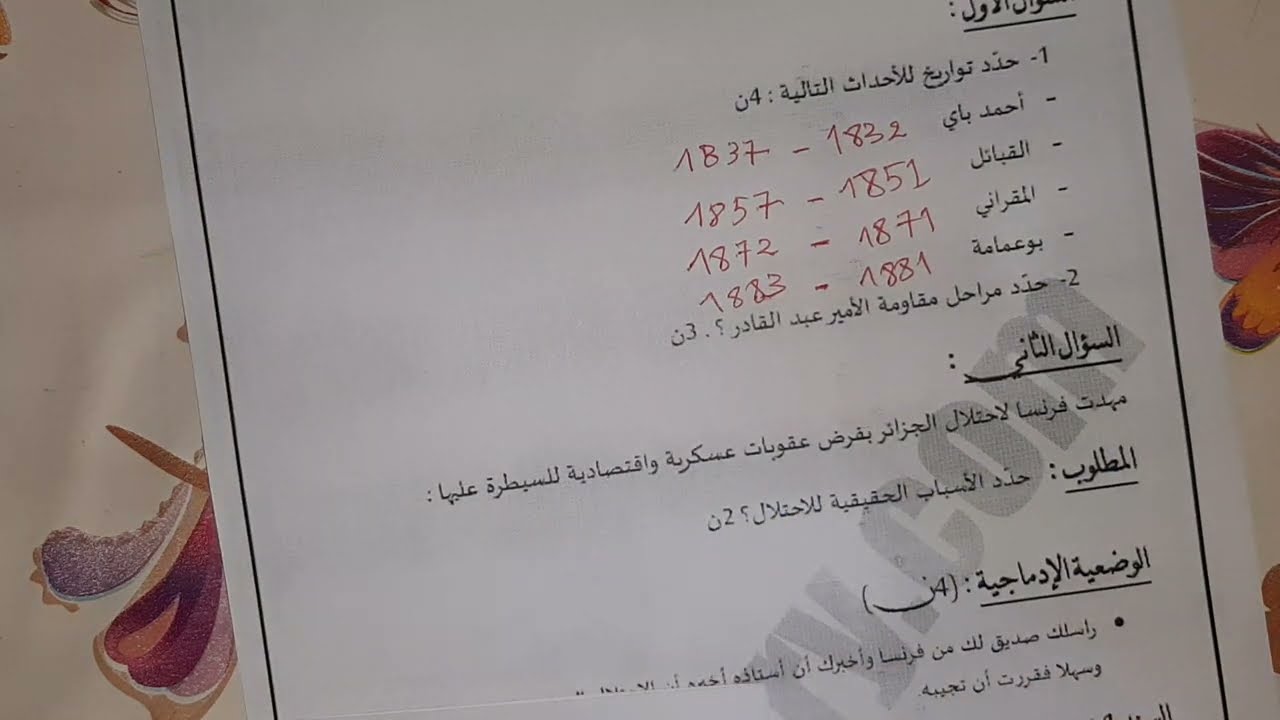 السؤال الأول :
1- حدّد تواريخ للأحداث التالية : 4ن
- أحمد باي 1832 - 1837
- القبائل 1851 - 1857
- المقراني 1871 - 1872
- بوعمامة 1881 - 1883
2- حدّد مراحل مقاومة الأمير عبد القادر ؟ . 3ن
السؤال الثاني :
مهدت فرنسا لاحتلال الجزائر بفرض عقوبات عسكرية واقتصادية للسيطرة عليها :
المطلوب : حدّد الأسباب الحقيقية للاحتلال ؟ 2ن
الوضعية الإدماجية : (4ن)
• راسلك صديق لك من فرنسا وأخبرك أن أستاذه أخبره أن
وسهلا فقررت أن تجيبه.
y.com